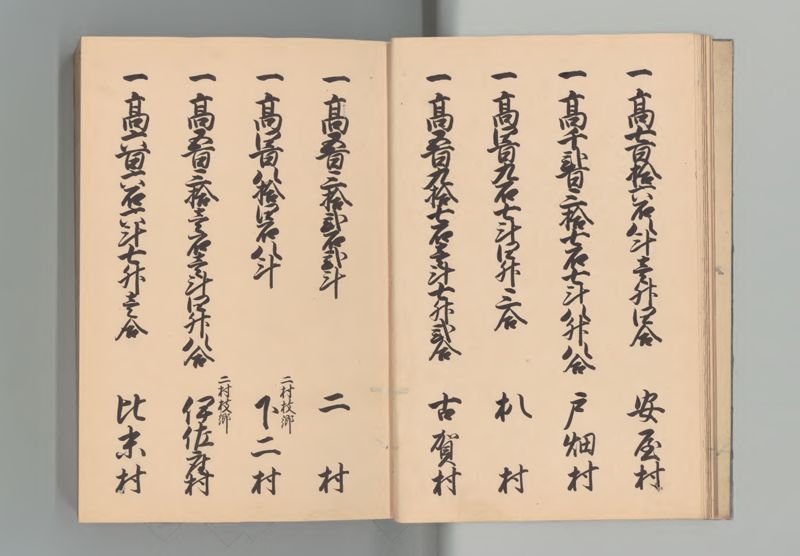 一 高七百拾六石八斗壱升四合 安屋村
一 高千弐百三拾七石七斗八升八合 戸畑村
一 高四百九石七斗四升三合 札村
一 高五百九拾七石壱斗七升弐合 古賀村
一 高五百三拾弐石弐斗 二村
一 高四百八拾四石八斗 二村枝郷 下二村
一 高五百三拾壱石壱斗四升八合 二村枝郷 伊佐座村
一 高六百六石六斗七升壱合 比末村